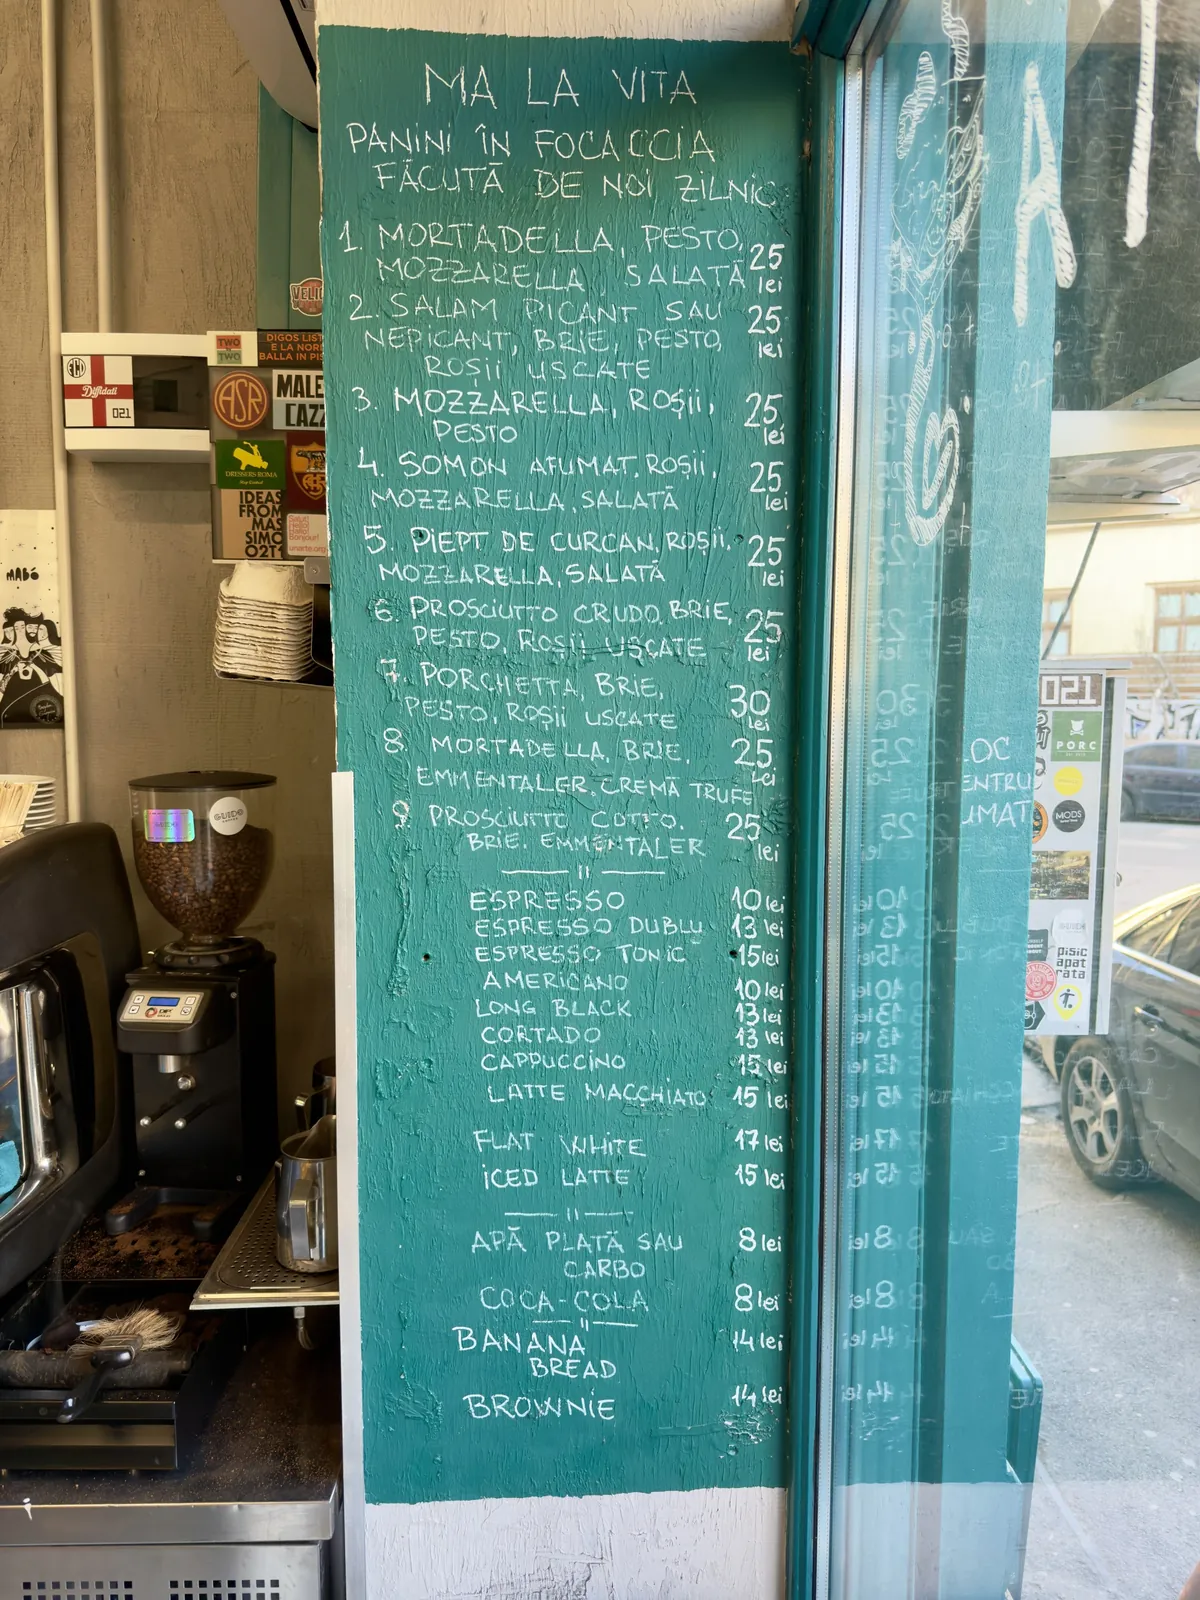 MA LA VITA
PANINI ÎN FOCACCIA
FĂCUTĂ DE NOI ZILNIC
1. MORTADELLA, PESTO,
MOZZARELLA SALATĂ 25 lei
2. SALAM PICANT SAU
NEPICANT, BRIE, PESTO, 25 lei
ROȘII USCATE
3. MOZZARELLA, ROȘII,
PESTO 25 lei
4. SOMON AFUMAT, ROȘII,
MOZZARELLA, SALATĂ 25 lei
5. PIEPT DE CURCAN, ROȘII,
MOZZARELLA, SALATĂ 25 lei
6. PROSCIUTTO CRUDO, BRIE,
PESTO, ROȘII USCATE 25 lei
7. PORCHETTA, BRIE,
PESTO, ROȘII USCATE 30 lei
8. MORTADELLA, BRIE, 25 lei
EMMENTALER, CREMĂ TRUFE
9. PROSCIUTTO COTTO,
BRIE, EMMENTALER 25 lei
ESPRESSO 10 lei
ESPRESSO DUBLU 13 lei
ESPRESSO TONIC 15 lei
AMERICANO 10 lei
LONG BLACK 13 lei
CORTADO 13 lei
CAPPUCCINO 15 lei
LATTE MACCHIATO 15 lei
FLAT WHITE 17 lei
ICED LATTE 15 lei
APĂ PLATĂ SAU 8 lei
CARBO
COCA-COLA 8 lei
BANANA 14 lei
BREAD
BROWNIE 14 lei
Diffidati
021
TWO
TWO
BALLA IN
ASR
MALE
CAZZ
DRESSERS ROMA
IDEAS
FROM
MAS
SIMO
021
MABÓ
GUIDO
021
PORC
MODS
pisic
apat
rata